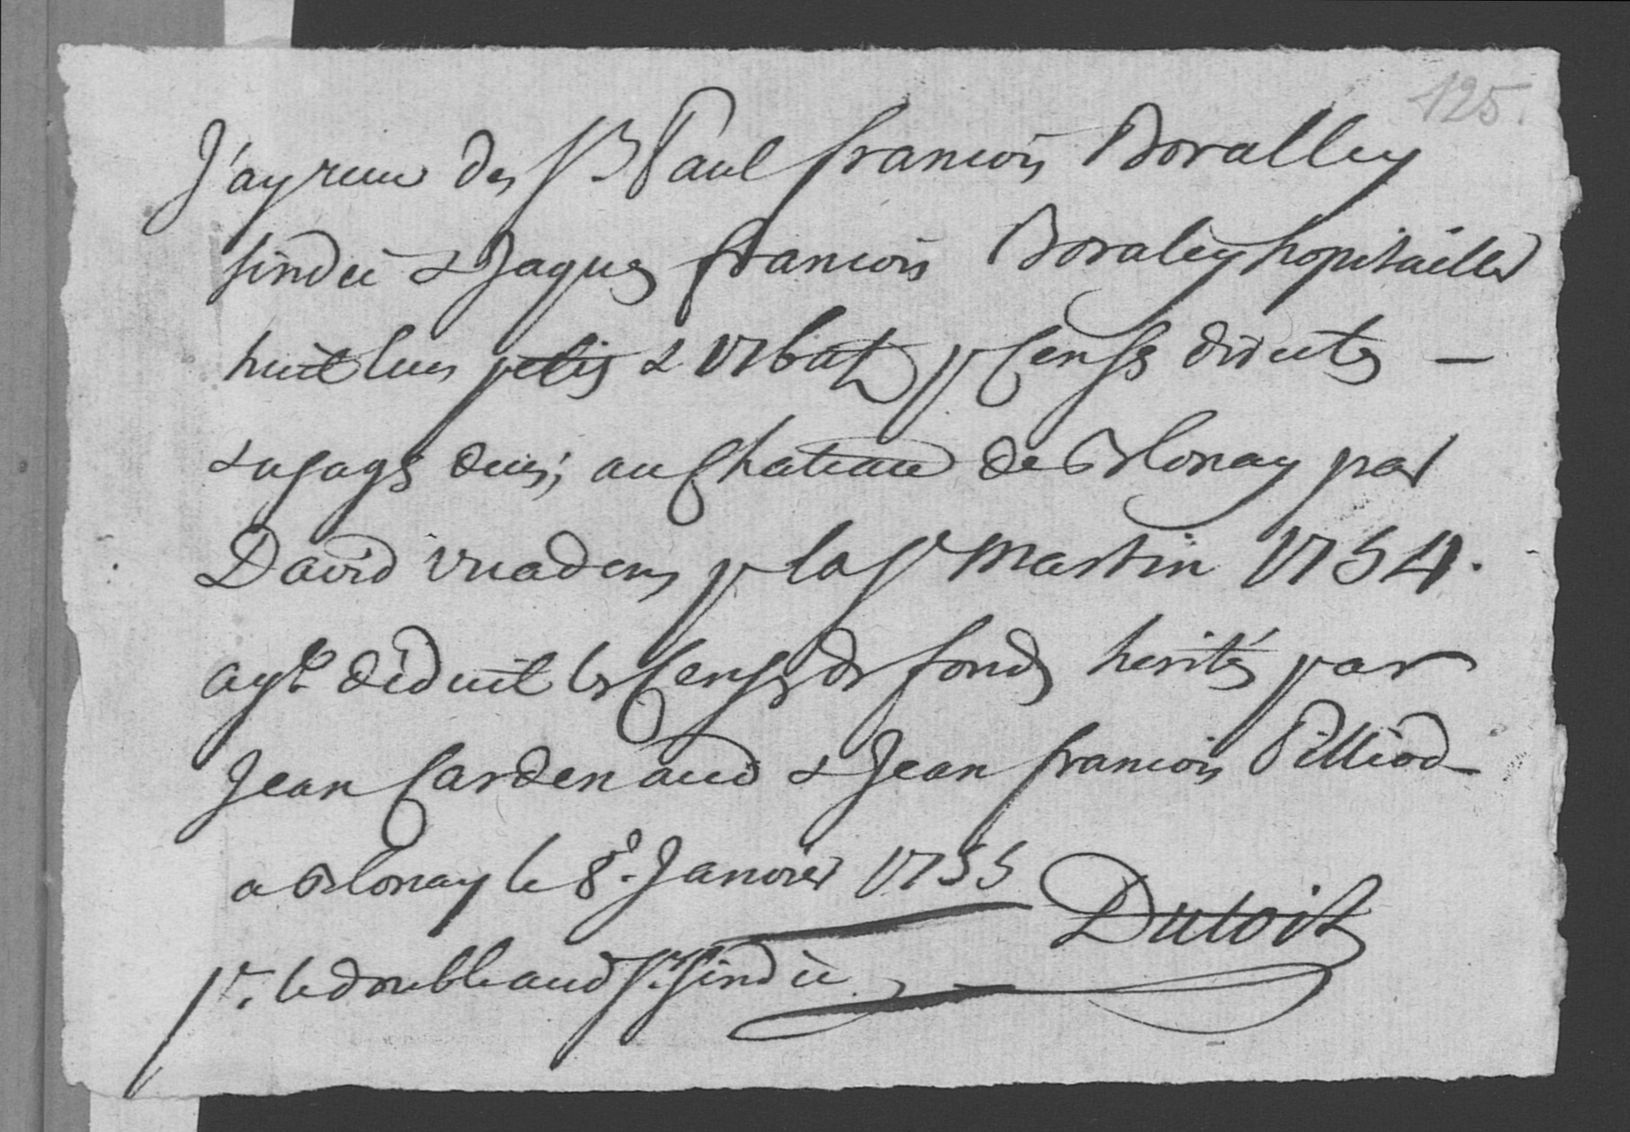 125.
J'ay receu des Sr. Paul francois Boralley
sindic & Jaques francois Boraley hopitailler
huit lucs petis & VI batz pr Censes directes —
& usages deus; au Chateau de Blonay par
David vuadens pr la St Martin 1754.
aÿt déduit les Censes de fonds herités par
Jean Cardenaud & Jean francois Pilliod –
a Blonay le 8e. Janvier 1755
Dutoit
pr. le double aud Sr. sindic